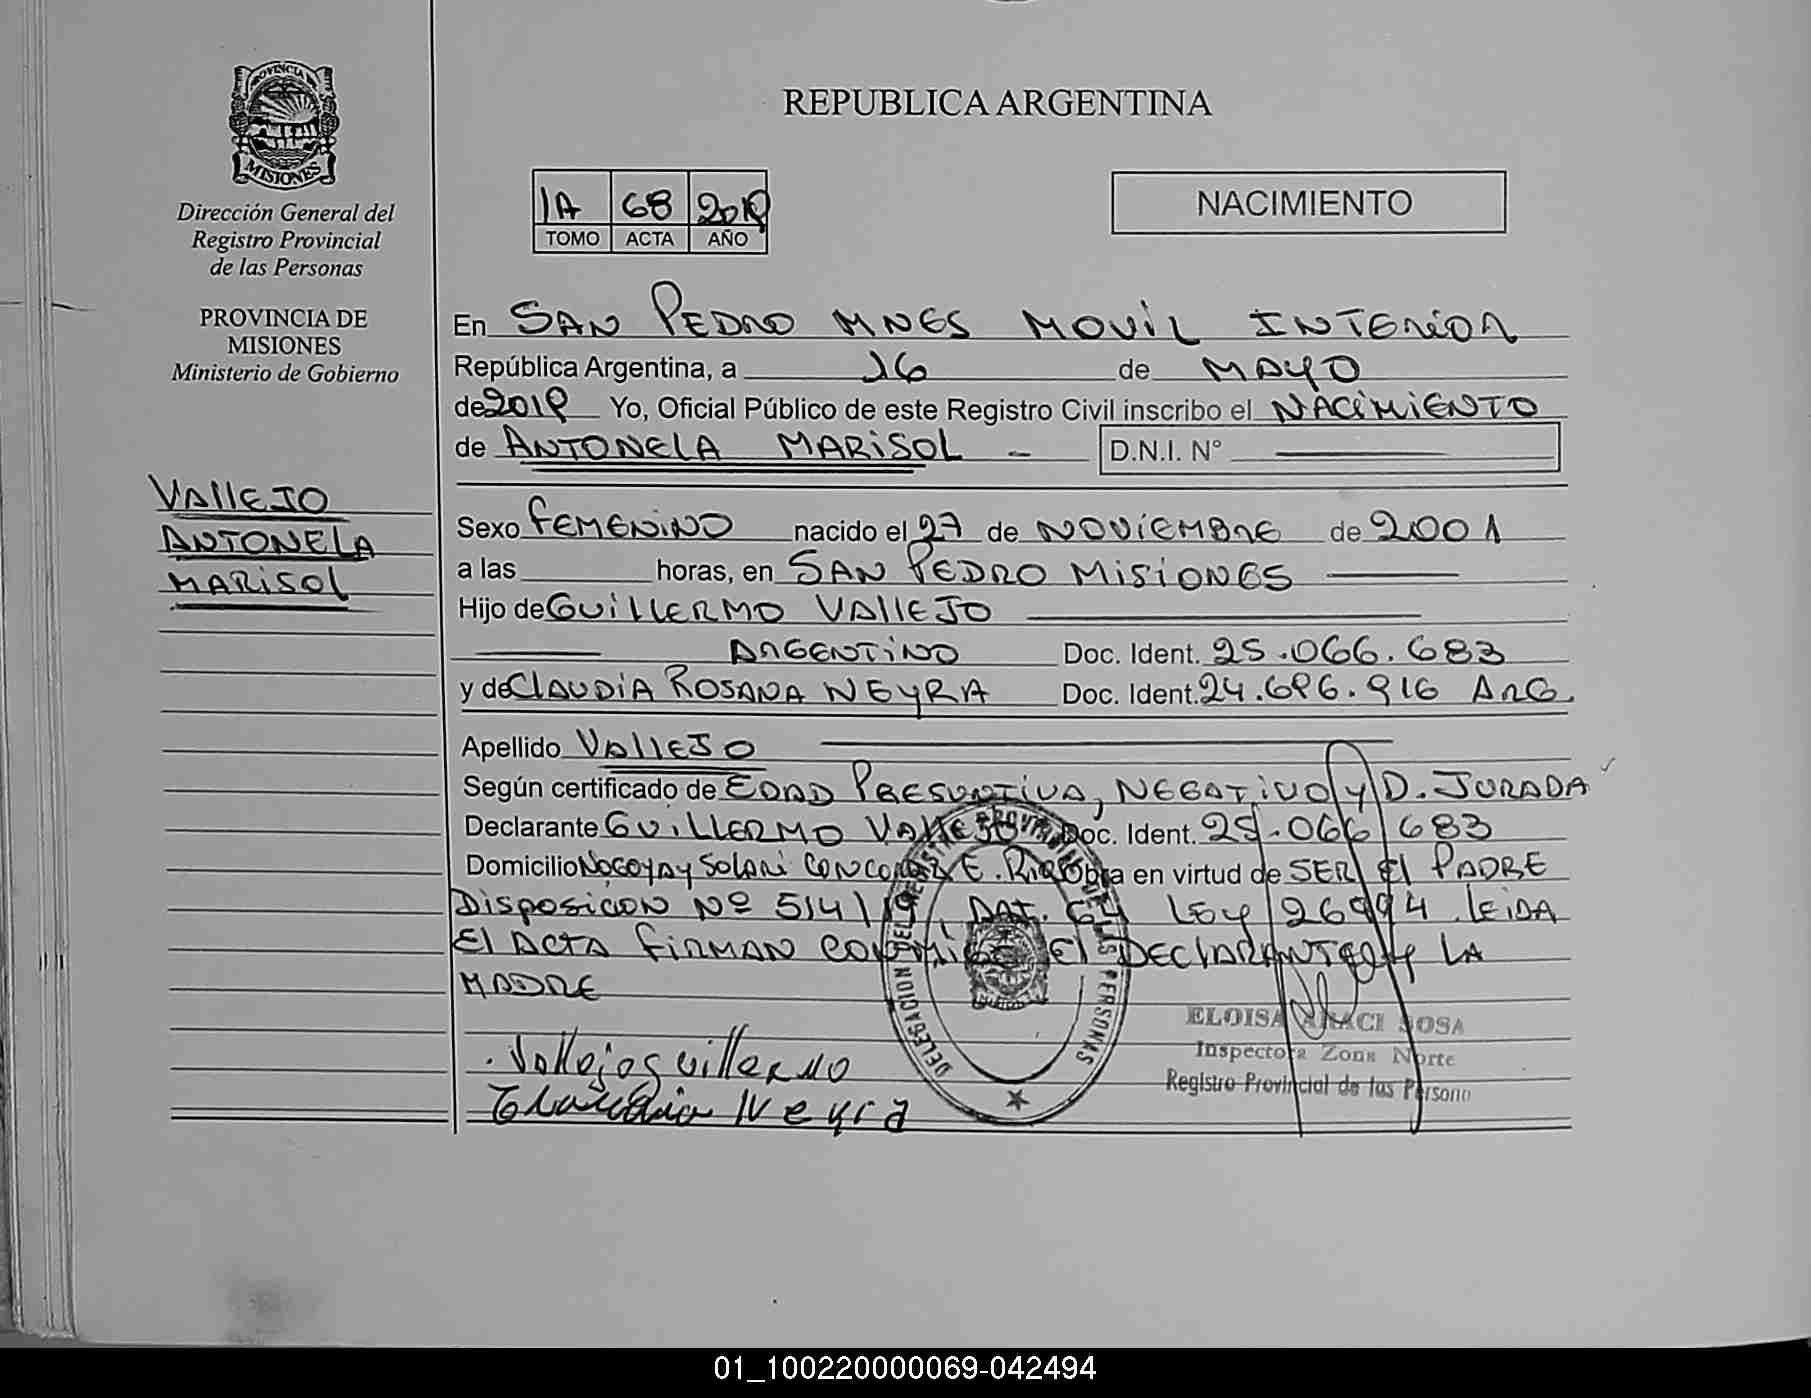 PROVINCIA
MISIONES
Dirección General del
Registro Provincial
de las Personas
PROVINCIA DE
MISIONES
Ministerio de Gobierno
VALLEJO
ANTONELA
MARISOL
REPUBLICA ARGENTINA
1A 68 2019
TOMO ACTA AÑO
NACIMIENTO
En SAN PEDRO MNES MOVIL INTERIOR
República Argentina, a 16 de MAYO
de 2019 Yo, Oficial Público de este Registro Civil inscribo el NACIMIENTO
de ANTONELA MARISOL - D.N.I. N°
Sexo FEMENINO nacido el 27 de NOVIEMBRE de 2001
a las horas, en SAN PEDRO MISIONES
Hijo de GUILLERMO VALLEJO
ARGENTINO Doc. Ident. 25.066.683
y de CLAUDIA ROSANA NEYRA Doc. Ident. 24.696.916 ARG.
Apellido VALLEJO
Según certificado de EDAD PRESUNTIVA, NEGATIVO Y D. JURADA
Declarante GUILLERMO VALLEJO Doc. Ident. 25.066.683
Domicilio NOGOYA Y SOLARI E. Obra en virtud de SER EL PADRE
DISPOSICION Nº 514/19, 64 LEY 26994. LEIDA
EL ACTA FIRMAN CONMIGO EL DECLARANTE Y LA
MADRE
Vallejos Guillermo
Claudia Neyra
DELEGACION DEL REGISTRO PROVINCIAL DE LAS PERSONAS
ELOISA ARACI SOSA
Inspectora Zona Norte
Registro Provincial de las Persona
01_100220000069-042494